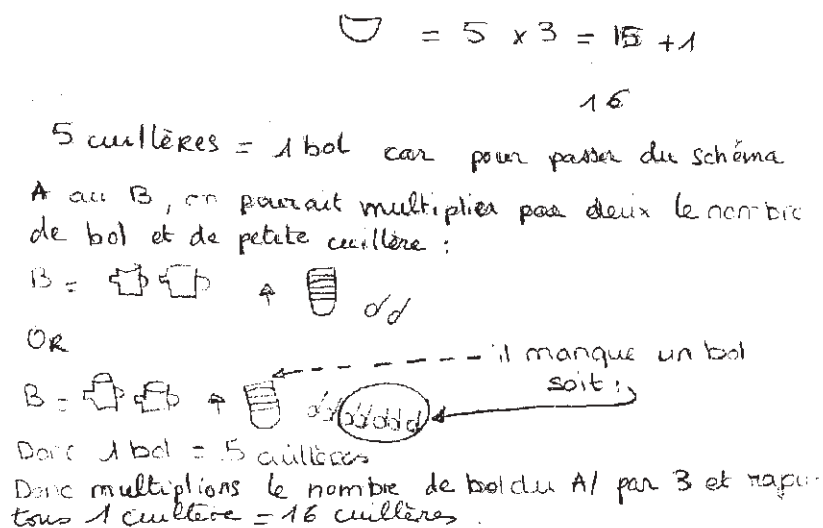 = 5 x 3 = 15 + 1
16
5 cuillères = 1 bol car pour passer du schéma
A au B, on pourait multiplier par deux le nombre
de bol et de petite cuillère :
B =
OR
il manque un bol
soit :
B =
Donc 1 bol = 5 cuillères
Donc multiplions le nombre de bol du A/ par 3 et rajou-
tons 1 cuillère = 16 cuillères.